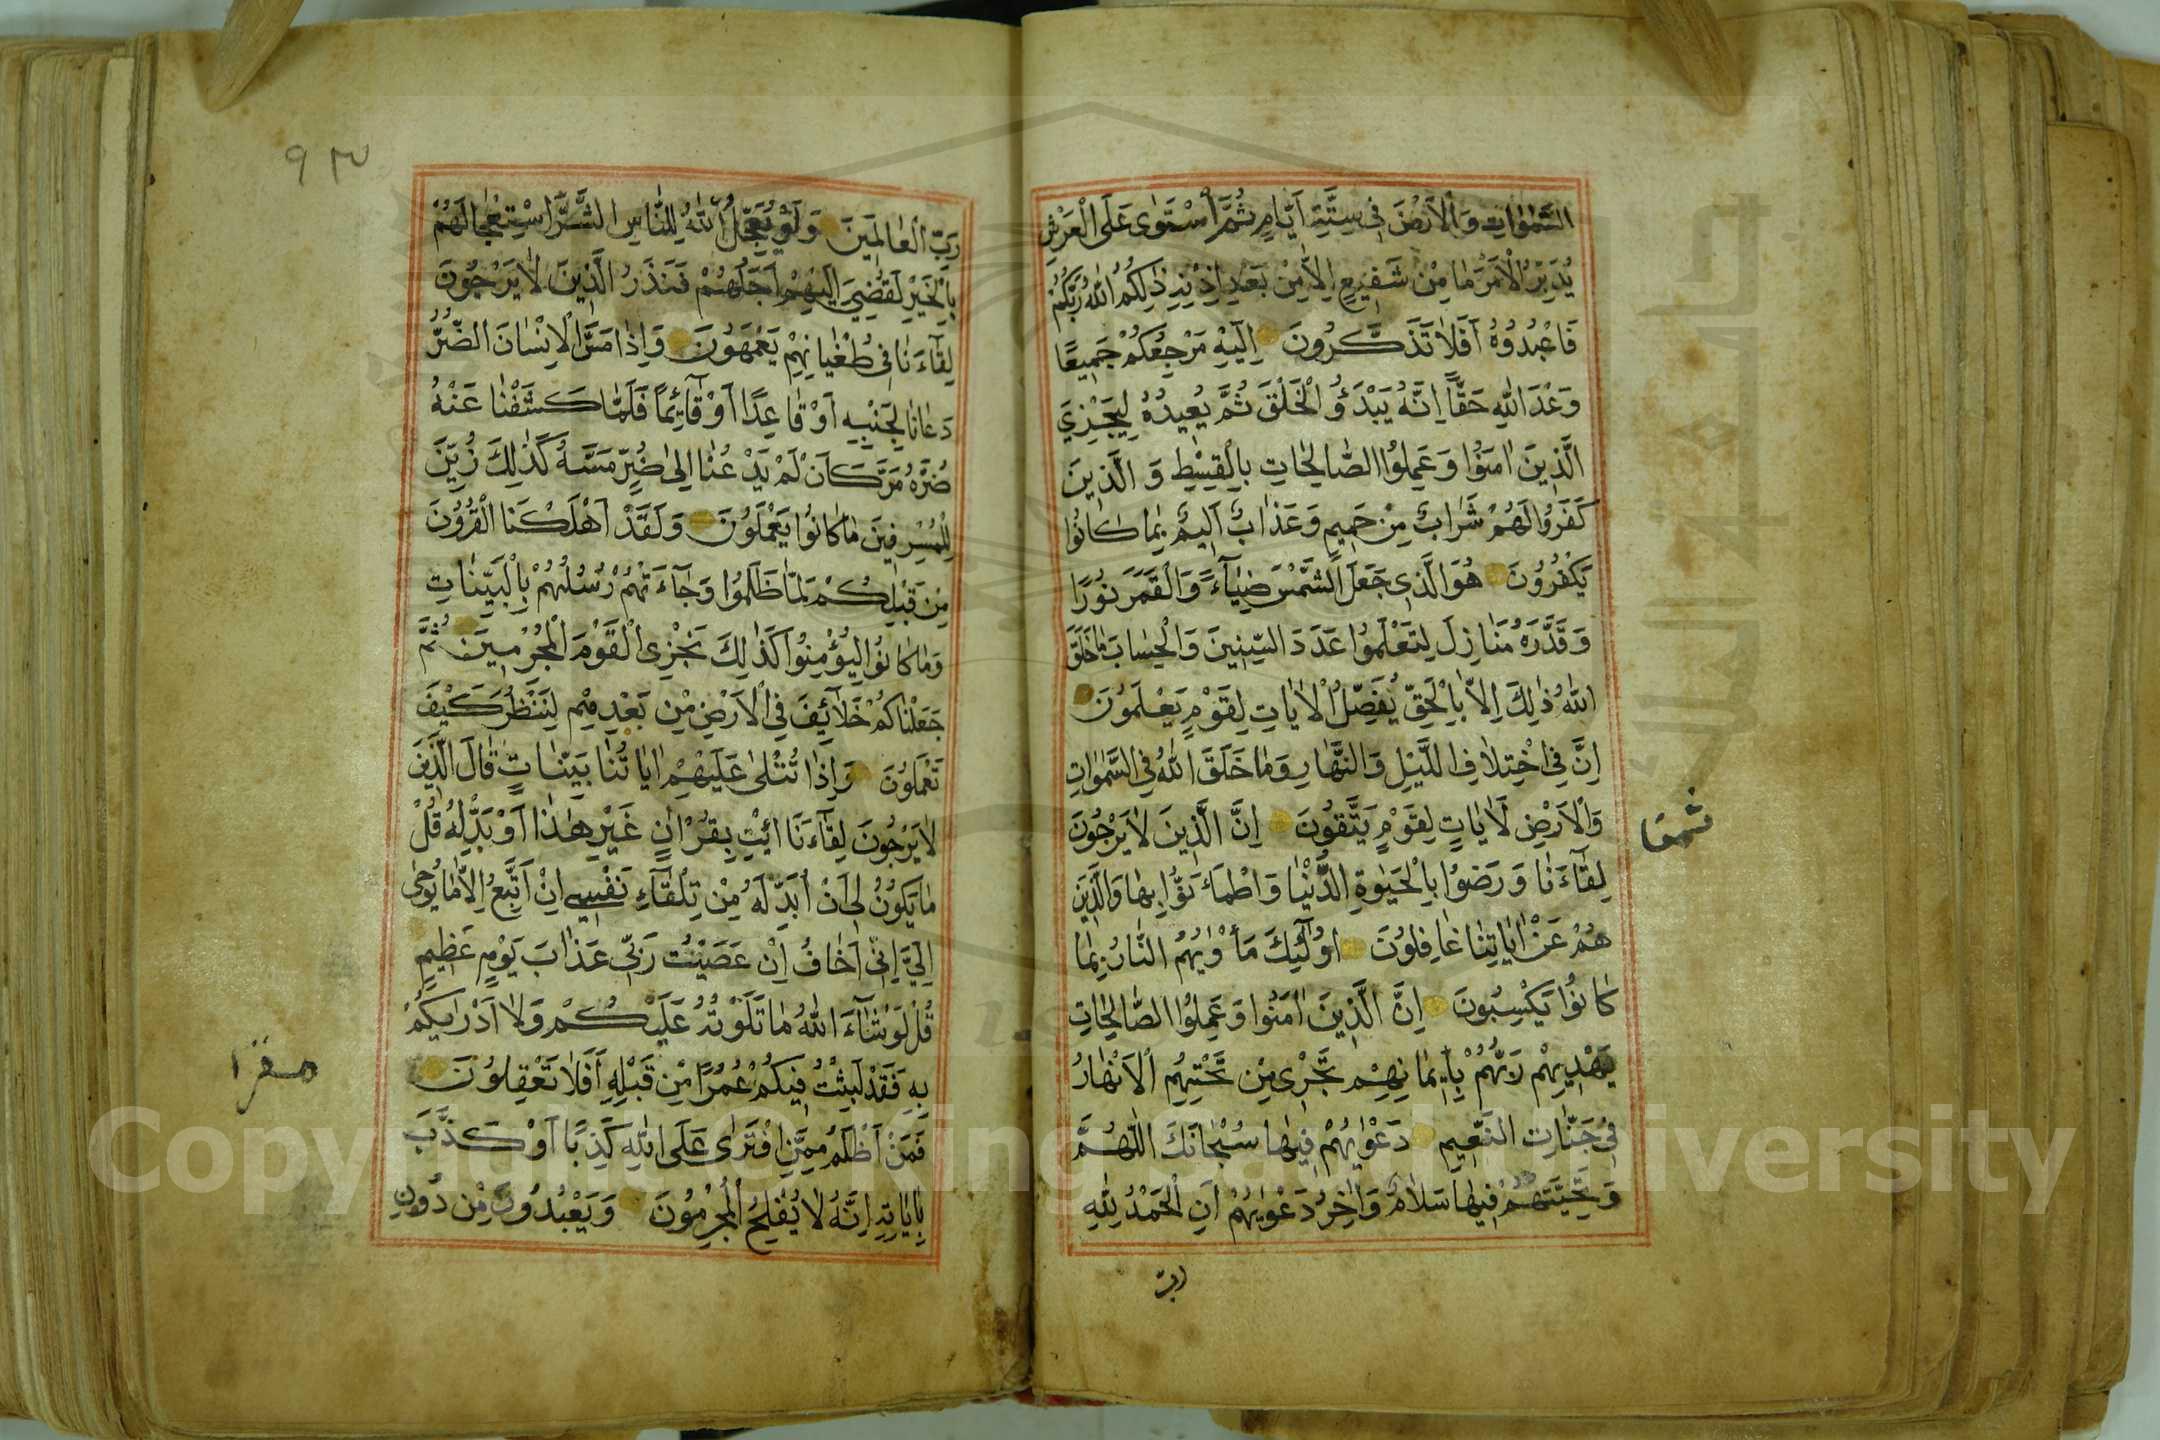 السَّمٰوَاتِ وَالْاَرْضَ فِى سِتَّةِ اَيَّامٍ ثُمَّ اسْتَوٰى عَلَى الْعَرْشِ
يُدَبِّرُ الْاَمْرَ مَا مِنْ شَفِيعٍ اِلَّا مِنْ بَعْدِ اِذْنِهِ ذٰلِكُمُ اللّٰهُ رَبُّكُمْ
فَاعْبُدُوهُ اَفَلَا تَذَكَّرُونَ اِلَيْهِ مَرْجِعُكُمْ جَمِيعًا
وَعْدَ اللّٰهِ حَقًّا اِنَّهُ يَبْدَؤُ الْخَلْقَ ثُمَّ يُعِيدُهُ لِيَجْزِيَ
الَّذِينَ اٰمَنُوا وَعَمِلُوا الصَّالِحَاتِ بِالْقِسْطِ وَالَّذِينَ
كَفَرُوا لَهُمْ شَرَابٌ مِنْ حَمِيمٍ وَعَذَابٌ اَلِيمٌ بِمَا كَانُوا
يَكْفُرُونَ هُوَ الَّذِى جَعَلَ الشَّمْسَ ضِيَآءً وَالْقَمَرَ نُورًا
وَقَدَّرَهُ مَنَازِلَ لِتَعْلَمُوا عَدَدَ السِّنِينَ وَالْحِسَابَ مَا خَلَقَ
اللّٰهُ ذٰلِكَ اِلَّا بِالْحَقِّ يُفَصِّلُ الْاٰيَاتِ لِقَوْمٍ يَعْلَمُونَ
اِنَّ فِى اخْتِلَافِ اللَّيْلِ وَالنَّهَارِ وَمَا خَلَقَ اللّٰهُ فِى السَّمٰوَاتِ
وَالْاَرْضِ لَاٰيَاتٍ لِقَوْمٍ يَتَّقُونَ اِنَّ الَّذِينَ لَا يَرْجُونَ
لِقَآءَنَا وَرَضُوا بِالْحَيٰوةِ الدُّنْيَا وَاطْمَاَنُّوا بِهَا وَالَّذِينَ
هُمْ عَنْ اٰيَاتِنَا غَافِلُونَ اُولٰٓئِكَ مَاْوٰيهُمُ النَّارُ بِمَا
كَانُوا يَكْسِبُونَ اِنَّ الَّذِينَ اٰمَنُوا وَعَمِلُوا الصَّالِحَاتِ
يَهْدِيهِمْ رَبُّهُمْ بِاِيمَانِهِمْ تَجْرِى مِنْ تَحْتِهِمُ الْاَنْهَارُ
فِى جَنَّاتِ النَّعِيمِ دَعْوٰيهُمْ فِيهَا سُبْحَانَكَ اللّٰهُمَّ
وَتَحِيَّتُهُمْ فِيهَا سَلَامٌ وَاٰخِرُ دَعْوٰيهُمْ اَنِ الْحَمْدُ لِلّٰهِ
٩٣
رَبِّ الْعَالَمِينَ وَلَوْ يُعَجِّلُ اللّٰهُ لِلنَّاسِ الشَّرَّ اسْتِعْجَالَهُمْ
بِالْخَيْرِ لَقُضِيَ اِلَيْهِمْ اَجَلُهُمْ فَنَذَرُ الَّذِينَ لَا يَرْجُونَ
لِقَآءَنَا فِى طُغْيَانِهِمْ يَعْمَهُونَ وَاِذَا مَسَّ الْاِنْسَانَ الضُّرُّ
دَعَانَا لِجَنْبِهِ اَوْ قَاعِدًا اَوْ قَآئِمًا فَلَمَّا كَشَفْنَا عَنْهُ
ضُرَّهُ مَرَّ كَاَنْ لَمْ يَدْعُنَا اِلٰى ضُرٍّ مَسَّهُ كَذٰلِكَ زُيِّنَ
لِلْمُسْرِفِينَ مَا كَانُوا يَعْمَلُونَ وَلَقَدْ اَهْلَكْنَا الْقُرُونَ
مِنْ قَبْلِكُمْ لَمَّا ظَلَمُوا وَجَآءَتْهُمْ رُسُلُهُمْ بِالْبَيِّنَاتِ
وَمَا كَانُوا لِيُؤْمِنُوا كَذٰلِكَ نَجْزِى الْقَوْمَ الْمُجْرِمِينَ ثُمَّ
جَعَلْنَاكُمْ خَلَآئِفَ فِى الْاَرْضِ مِنْ بَعْدِهِمْ لِنَنْظُرَ كَيْفَ
تَعْمَلُونَ وَاِذَا تُتْلٰى عَلَيْهِمْ اٰيَاتُنَا بَيِّنَاتٍ قَالَ الَّذِينَ
لَا يَرْجُونَ لِقَآءَنَا ائْتِ بِقُرْاٰنٍ غَيْرِ هٰذَا اَوْ بَدِّلْهُ قُلْ
مَا يَكُونُ لِى اَنْ اُبَدِّلَهُ مِنْ تِلْقَآءِ نَفْسِى اِنْ اَتَّبِعُ اِلَّا مَا يُوحٰى
اِلَيَّ اِنِّى اَخَافُ اِنْ عَصَيْتُ رَبِّى عَذَابَ يَوْمٍ عَظِيمٍ
قُلْ لَوْ شَآءَ اللّٰهُ مَا تَلَوْتُهُ عَلَيْكُمْ وَلَا اَدْرٰيكُمْ
بِهِ فَقَدْ لَبِثْتُ فِيكُمْ عُمُرًا مِنْ قَبْلِهِ اَفَلَا تَعْقِلُونَ
فَمَنْ اَظْلَمُ مِمَّنِ افْتَرٰى عَلَى اللّٰهِ كَذِبًا اَوْ كَذَّبَ
بِاٰيَاتِهِ اِنَّهُ لَا يُفْلِحُ الْمُجْرِمُونَ وَيَعْبُدُونَ مِنْ دُونِ
Copyright © King Saud University